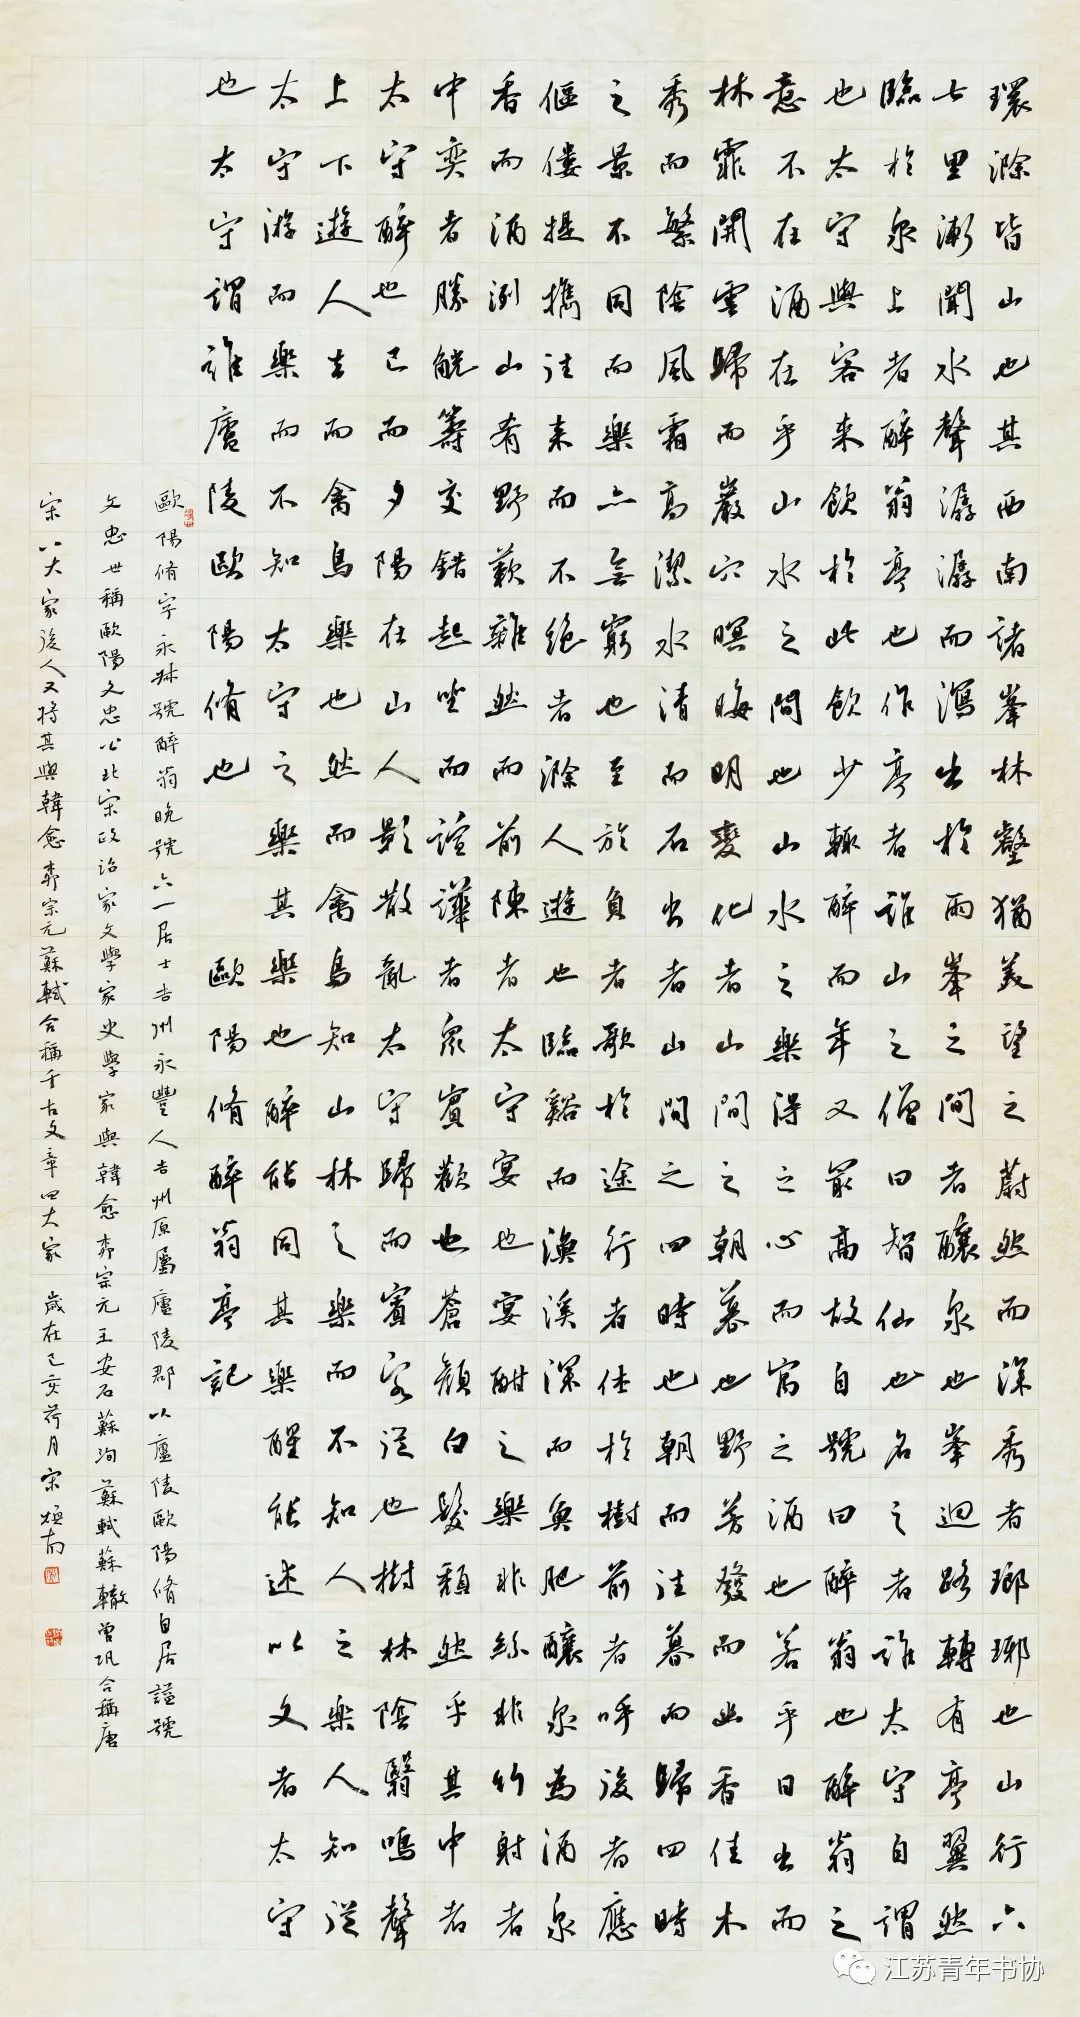 環滁皆山也其西南諸峯林壑猶美望之蔚然而深秀者瑯琊也山行六
七里漸聞水聲潺潺而瀉出於兩峯之間者釀泉也峯迴路轉有亭翼然
臨於泉上者醉翁亭也作亭者誰山之僧曰智仙也名之者誰太守自謂
也太守與客來飲於此飲少輒醉而年又最高故自號曰醉翁也醉翁之
意不在酒在乎山水之間也山水之樂得之心而寓之酒也若乎日出而
林霏開雲歸而巖穴暝晦明變化者山間之朝暮也野芳發而幽香佳木
秀而繁陰風霜高潔水清而石出者山間之四時也朝而往暮而歸四時
之景不同而樂亦無窮也至於負者歌於途行者休於樹前者呼後者應
傴僂提攜往來而不絕者滁人遊也臨谿而漁溪深而魚肥釀泉為酒泉
香而酒洌山肴野蔌雜然而前陳者太守宴也宴酣之樂非絲非竹射者
中奕者勝觥籌交錯起坐而諠譁者眾賓歡也蒼顏白髮頹然乎其中者
太守醉也已而夕陽在山人影散亂太守歸而賓客從也樹林陰翳鳴聲
上下遊人去而禽鳥樂也然而禽鳥知山林之樂而不知人之樂人知從
太守游而樂而不知太守之樂其樂也醉能同其樂醒能述以文者太守
也太守謂誰廬陵歐陽脩也 歐陽脩醉翁亭記
歐陽脩字永叔號醉翁晚號六一居士吉州永豐人吉州原屬廬陵郡以廬陵歐陽脩自居謚號
文忠世稱歐陽文忠公北宋政治家文學家史學家與韓愈柳宗元王安石蘇洵蘇軾蘇轍曾鞏合稱唐
宋八大家後人又將其與韓愈柳宗元蘇軾合稱千古文章四大家 歲在己亥荷月宋
江苏青年书协